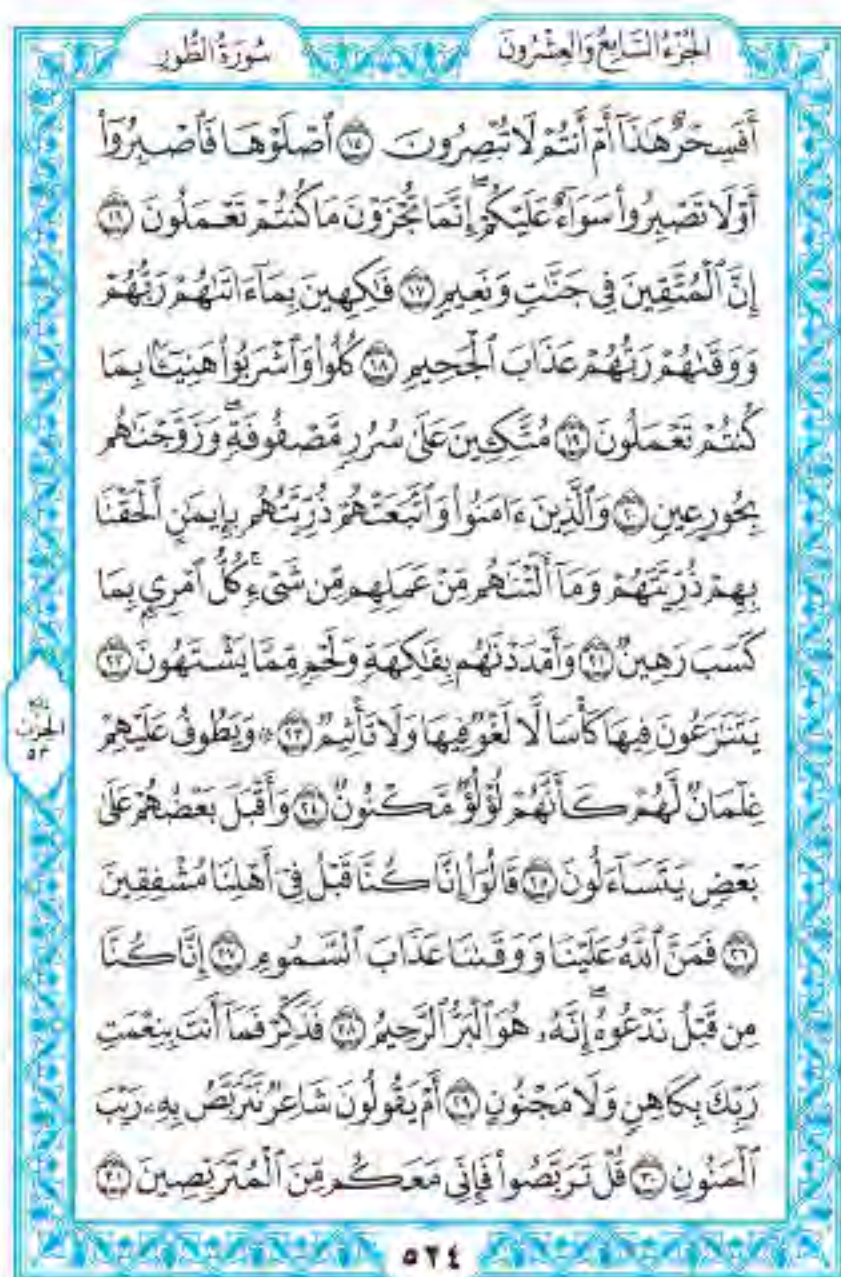 الجُزْءُ السَّابِعُ وَالعِشْرُونَ سُورَةُ الطُّورِ
أَفَسِحْرٌ هَٰذَآ أَمْ أَنتُمْ لَا تُبْصِرُونَ ١٥ ٱصْلَوْهَا فَٱصْبِرُوٓا۟
أَوْ لَا تَصْبِرُوا۟ سَوَآءٌ عَلَيْكُمْ ۖ إِنَّمَا تُجْزَوْنَ مَا كُنتُمْ تَعْمَلُونَ ١٦
إِنَّ ٱلْمُتَّقِينَ فِى جَنَّٰتٍ وَنَعِيمٍ ١٧ فَٰكِهِينَ بِمَآ ءَاتَىٰهُمْ رَبُّهُمْ
وَوَقَىٰهُمْ رَبُّهُمْ عَذَابَ ٱلْجَحِيمِ ١٨ كُلُوا۟ وَٱشْرَبُوا۟ هَنِيٓـًٔۢا بِمَا
كُنتُمْ تَعْمَلُونَ ١٩ مُتَّكِـِٔينَ عَلَىٰ سُرُرٍ مَّصْفُوفَةٍ ۖ وَزَوَّجْنَٰهُم
بِحُورٍ عِينٍ ٢٠ وَٱلَّذِينَ ءَامَنُوا۟ وَٱتَّبَعَتْهُمْ ذُرِّيَّتُهُم بِإِيمَٰنٍ أَلْحَقْنَا
بِهِمْ ذُرِّيَّتَهُمْ وَمَآ أَلَتْنَٰهُم مِّنْ عَمَلِهِم مِّن شَىْءٍ ۚ كُلُّ ٱمْرِئٍۭ بِمَا
كَسَبَ رَهِينٌ ٢١ وَأَمْدَدْنَٰهُم بِفَٰكِهَةٍ وَلَحْمٍ مِّمَّا يَشْتَهُونَ ٢٢
يَتَنَٰزَعُونَ فِيهَا كَأْسًا لَّا لَغْوٌ فِيهَا وَلَا تَأْثِيمٌ ٢٣ ۞ وَيَطُوفُ عَلَيْهِمْ
غِلْمَانٌ لَّهُمْ كَأَنَّهُمْ لُؤْلُؤٌ مَّكْنُونٌ ٢٤ وَأَقْبَلَ بَعْضُهُمْ عَلَىٰ
بَعْضٍ يَتَسَآءَلُونَ ٢٥ قَالُوٓا۟ إِنَّا كُنَّا قَبْلُ فِىٓ أَهْلِنَا مُشْفِقِينَ
٢٦ فَمَنَّ ٱللَّهُ عَلَيْنَا وَوَقَىٰنَا عَذَابَ ٱلسَّمُومِ ٢٧ إِنَّا كُنَّا
مِن قَبْلُ نَدْعُوهُ ۖ إِنَّهُۥ هُوَ ٱلْبَرُّ ٱلرَّحِيمُ ٢٨ فَذَكِّرْ فَمَآ أَنتَ بِنِعْمَتِ
رَبِّكَ بِكَاهِنٍ وَلَا مَجْنُونٍ ٢٩ أَمْ يَقُولُونَ شَاعِرٌ نَّتَرَبَّصُ بِهِۦ رَيْبَ
ٱلْمَنُونِ ٣٠ قُلْ تَرَبَّصُوا۟ فَإِنِّى مَعَكُم مِّنَ ٱلْمُتَرَبِّصِينَ ٣١
الحِزْب
٥٣
٥٢٤